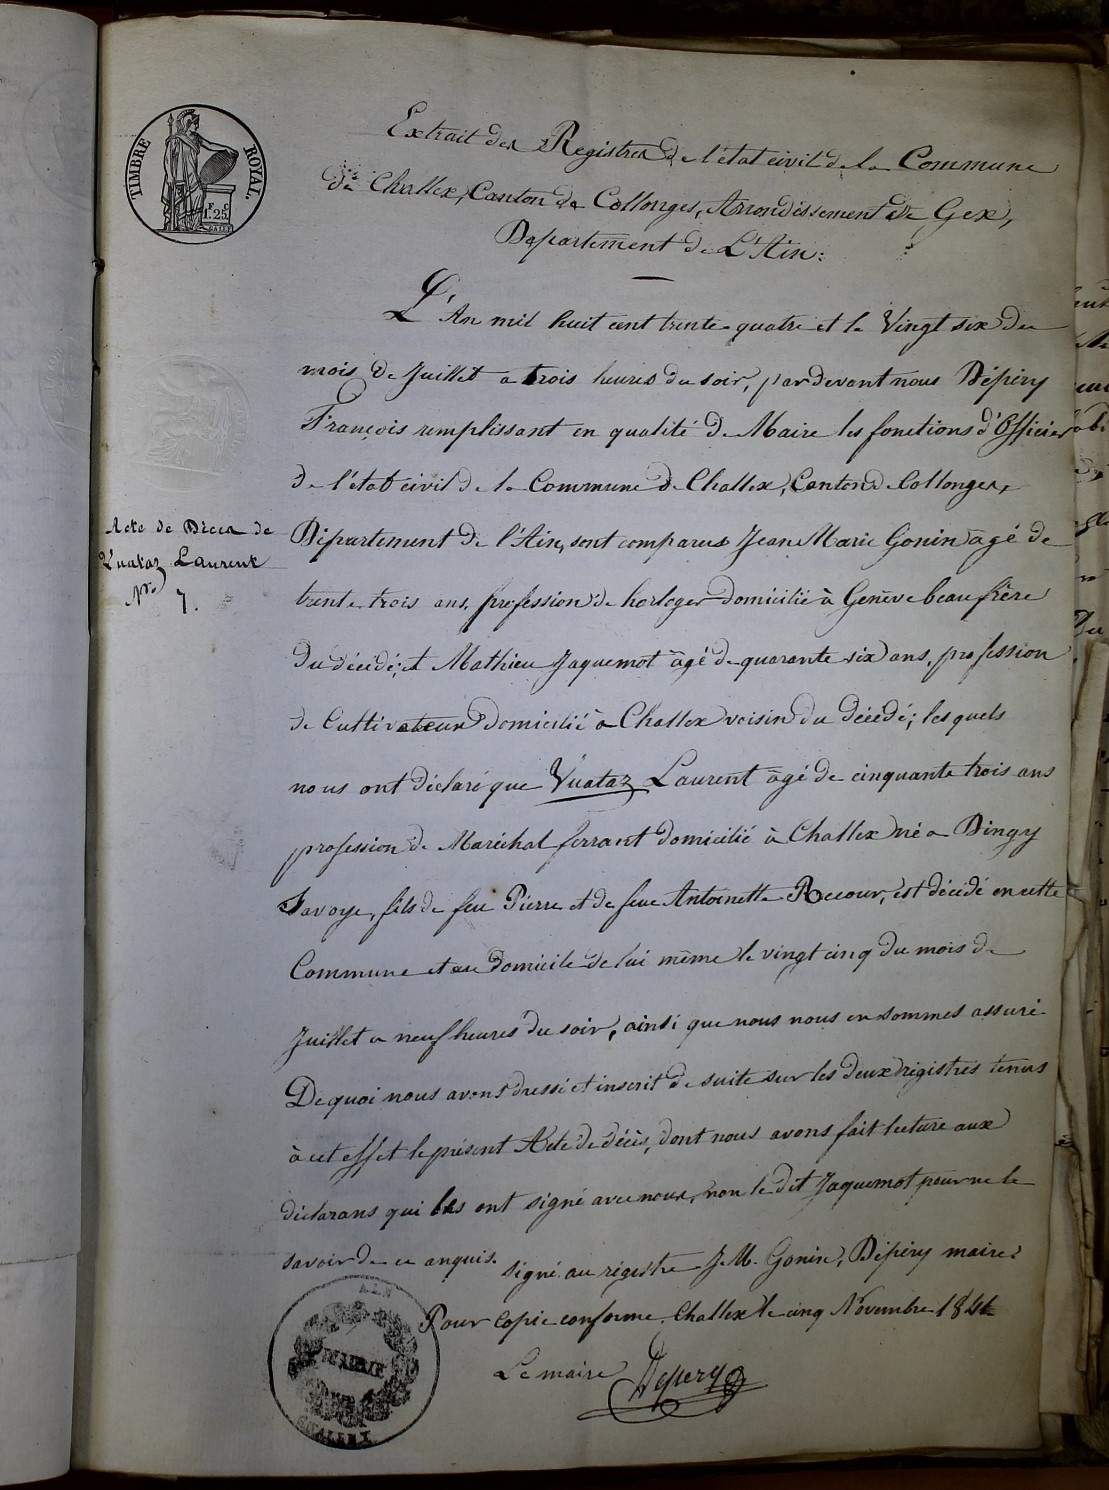 TIMBRE ROYAL.
F C
1.25
Extrait des Registres de l'état civil de la Commune
de Challex, Canton de Collonges, Arrondissement de Gex,
Département de L'Ain:
L'An mil huit cent trente quatre et le Vingt six du
mois de Juillet a trois heures du soir, par devant nous Dépéry
François remplissant en qualité de Maire les fonctions d'Officier
de l'état civil de la Commune de Challex, Canton de Collonges,
Acte de Décès de
Vuataz Laurent
No 7.
Département de l'Ain, sont comparus Jean Marie Gonin âgé de
trente trois ans, profession de horloger domicilié à Genève beau frère
du décédé; et Mathieu Jaquemot âgé de quarante six ans, profession
de Cultivateur domicilié à Challex voisin du décédé; les quels
nous ont déclaré que Vuataz Laurent âgé de cinquante trois ans
profession de Maréchal ferrant domicilié à Challex né a Dingy
Savoye, fils de feu Pierre et de feue Antoinette Recour, est décédé en cette
Commune et au domicile de lui même le vingt cinq du mois de
Juillet a neuf heures du soir, ainsi que nous nous en sommes assuré
De quoi nous avons dressé et inscrit de suite sur les deux régistres tenus
à cet effet le présent Acte de décès, dont nous avons fait lecture aux
déclarans qui ont signé avec nous, non le dit Jaquemot pour ne le
savoir de ce anquis. signé au régistre J. M. Gonin, Dépéry maire
Pour copie conforme. Challex le cinq Novembre 1841
Le maire Depery
AIN
MAIRIE
CHALLEX